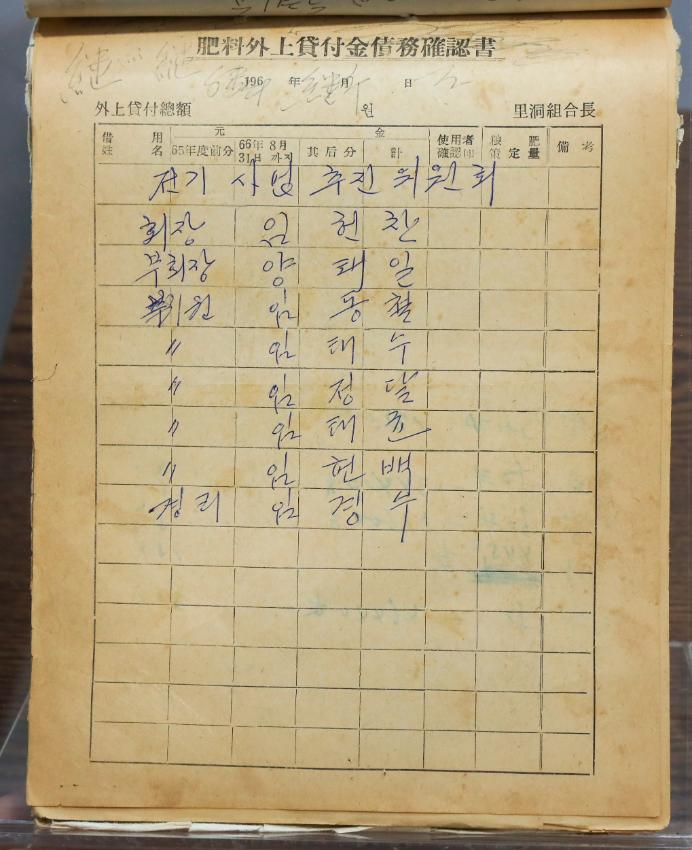 肥料外上貸付金債務確認書
196 年 月 日
外上貸付總額 원 里洞組合長
借用 姓名 元 金 使用者 確認㊞ 肥 定量 備考
65年度前分 66年8月31日까지 其后分 計
전기 사업 추진 위원회
회장 임 헌 찬
부회장 양 태 일
위원 임 동 철
〃 임 태 수
〃 임 정 달
〃 임 태 윤
〃 임 헌 백
경리 임 경 수